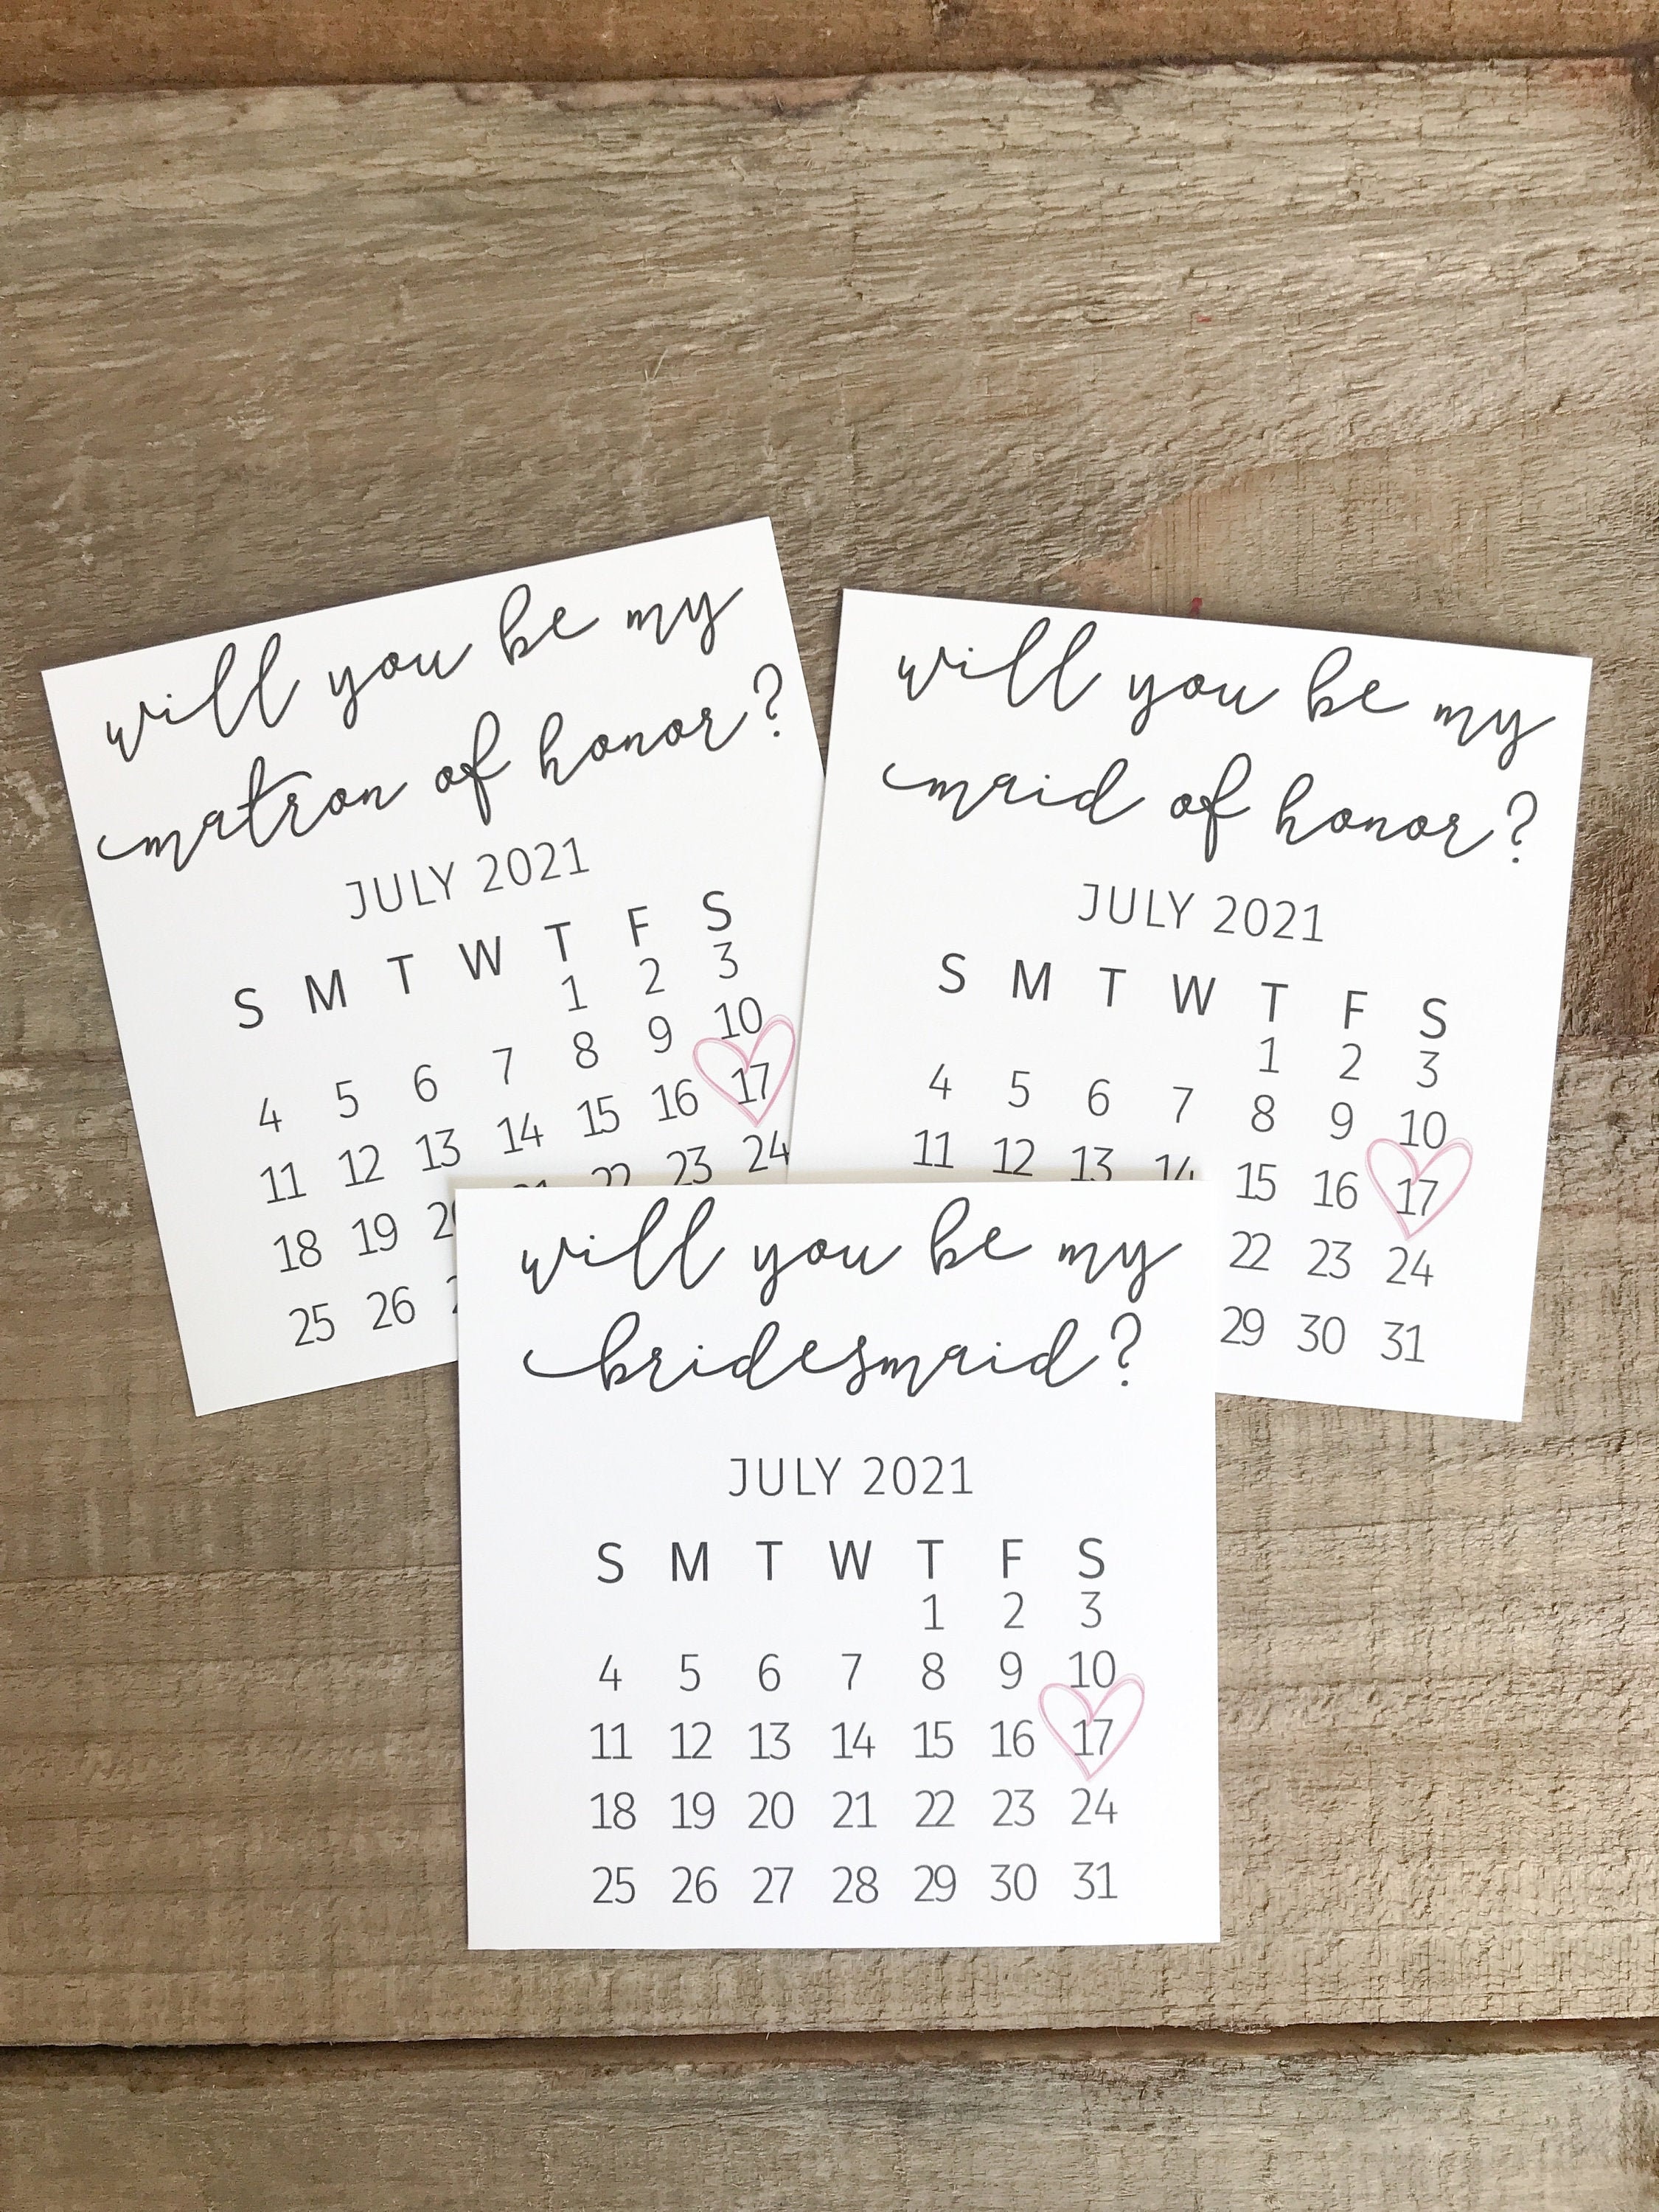 will you be my
matron of honor?
JULY 2021
S M T W T F S
1 2 3
4 5 6 7 8 9 10
11 12 13 14 15 16 17
18 19 22 23 24
25 26
will you be my
maid of honor?
JULY 2021
S M T W T F S
1 2 3
4 5 6 7 8 9 10
11 12 13 14 15 16 17
22 23 24
29 30 31
will you be my
bridesmaid?
JULY 2021
S M T W T F S
1 2 3
4 5 6 7 8 9 10
11 12 13 14 15 16 17
18 19 20 21 22 23 24
25 26 27 28 29 30 31